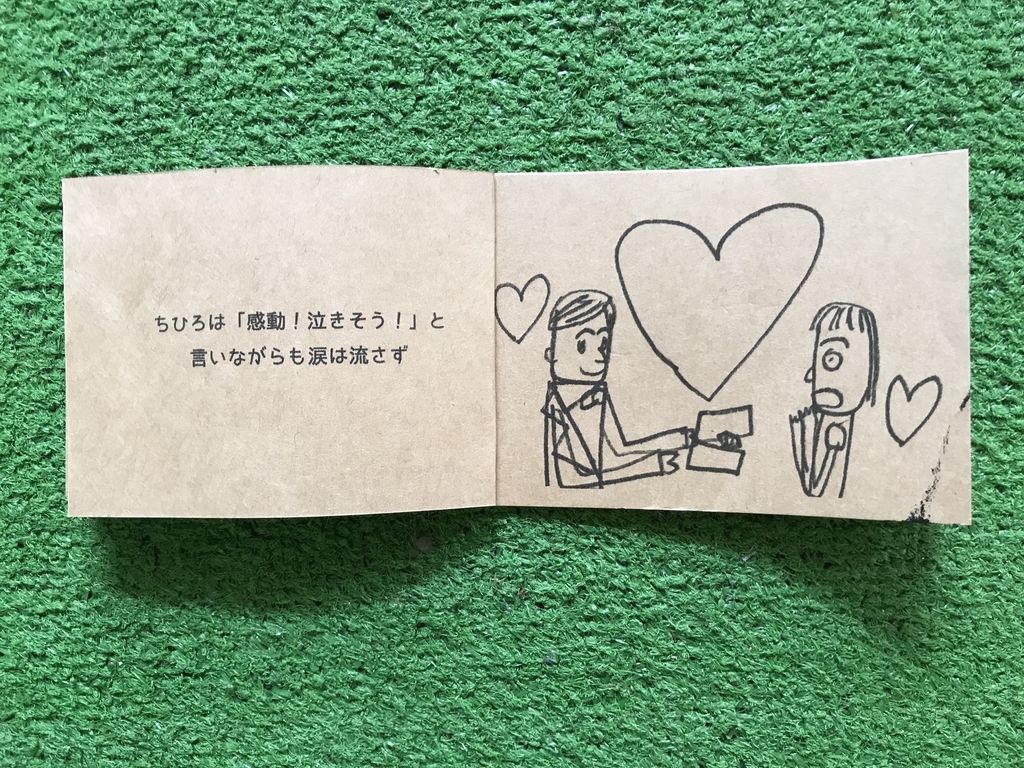 ちひろは「感動！泣きそう！」と
言いながらも涙は流さず